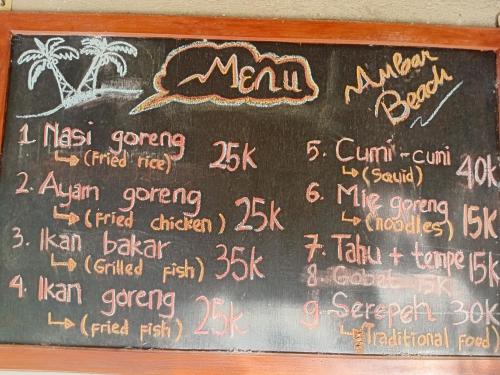 Menu
Ambar
Beach
1 Nasi goreng 25k
(Fried rice)
2. Ayam goreng
(Fried chicken) 25k
3. Ikan bakar
(Grilled fish) 35k
4. Ikan goreng
(fried fish) 25k
5. Cumi-cumi 40k
(Squid)
6. Mie goreng
(noodles) 15k
7. Tahu + tempe 15k
8. 15k
9 Serepeh 30k
(Traditional food)